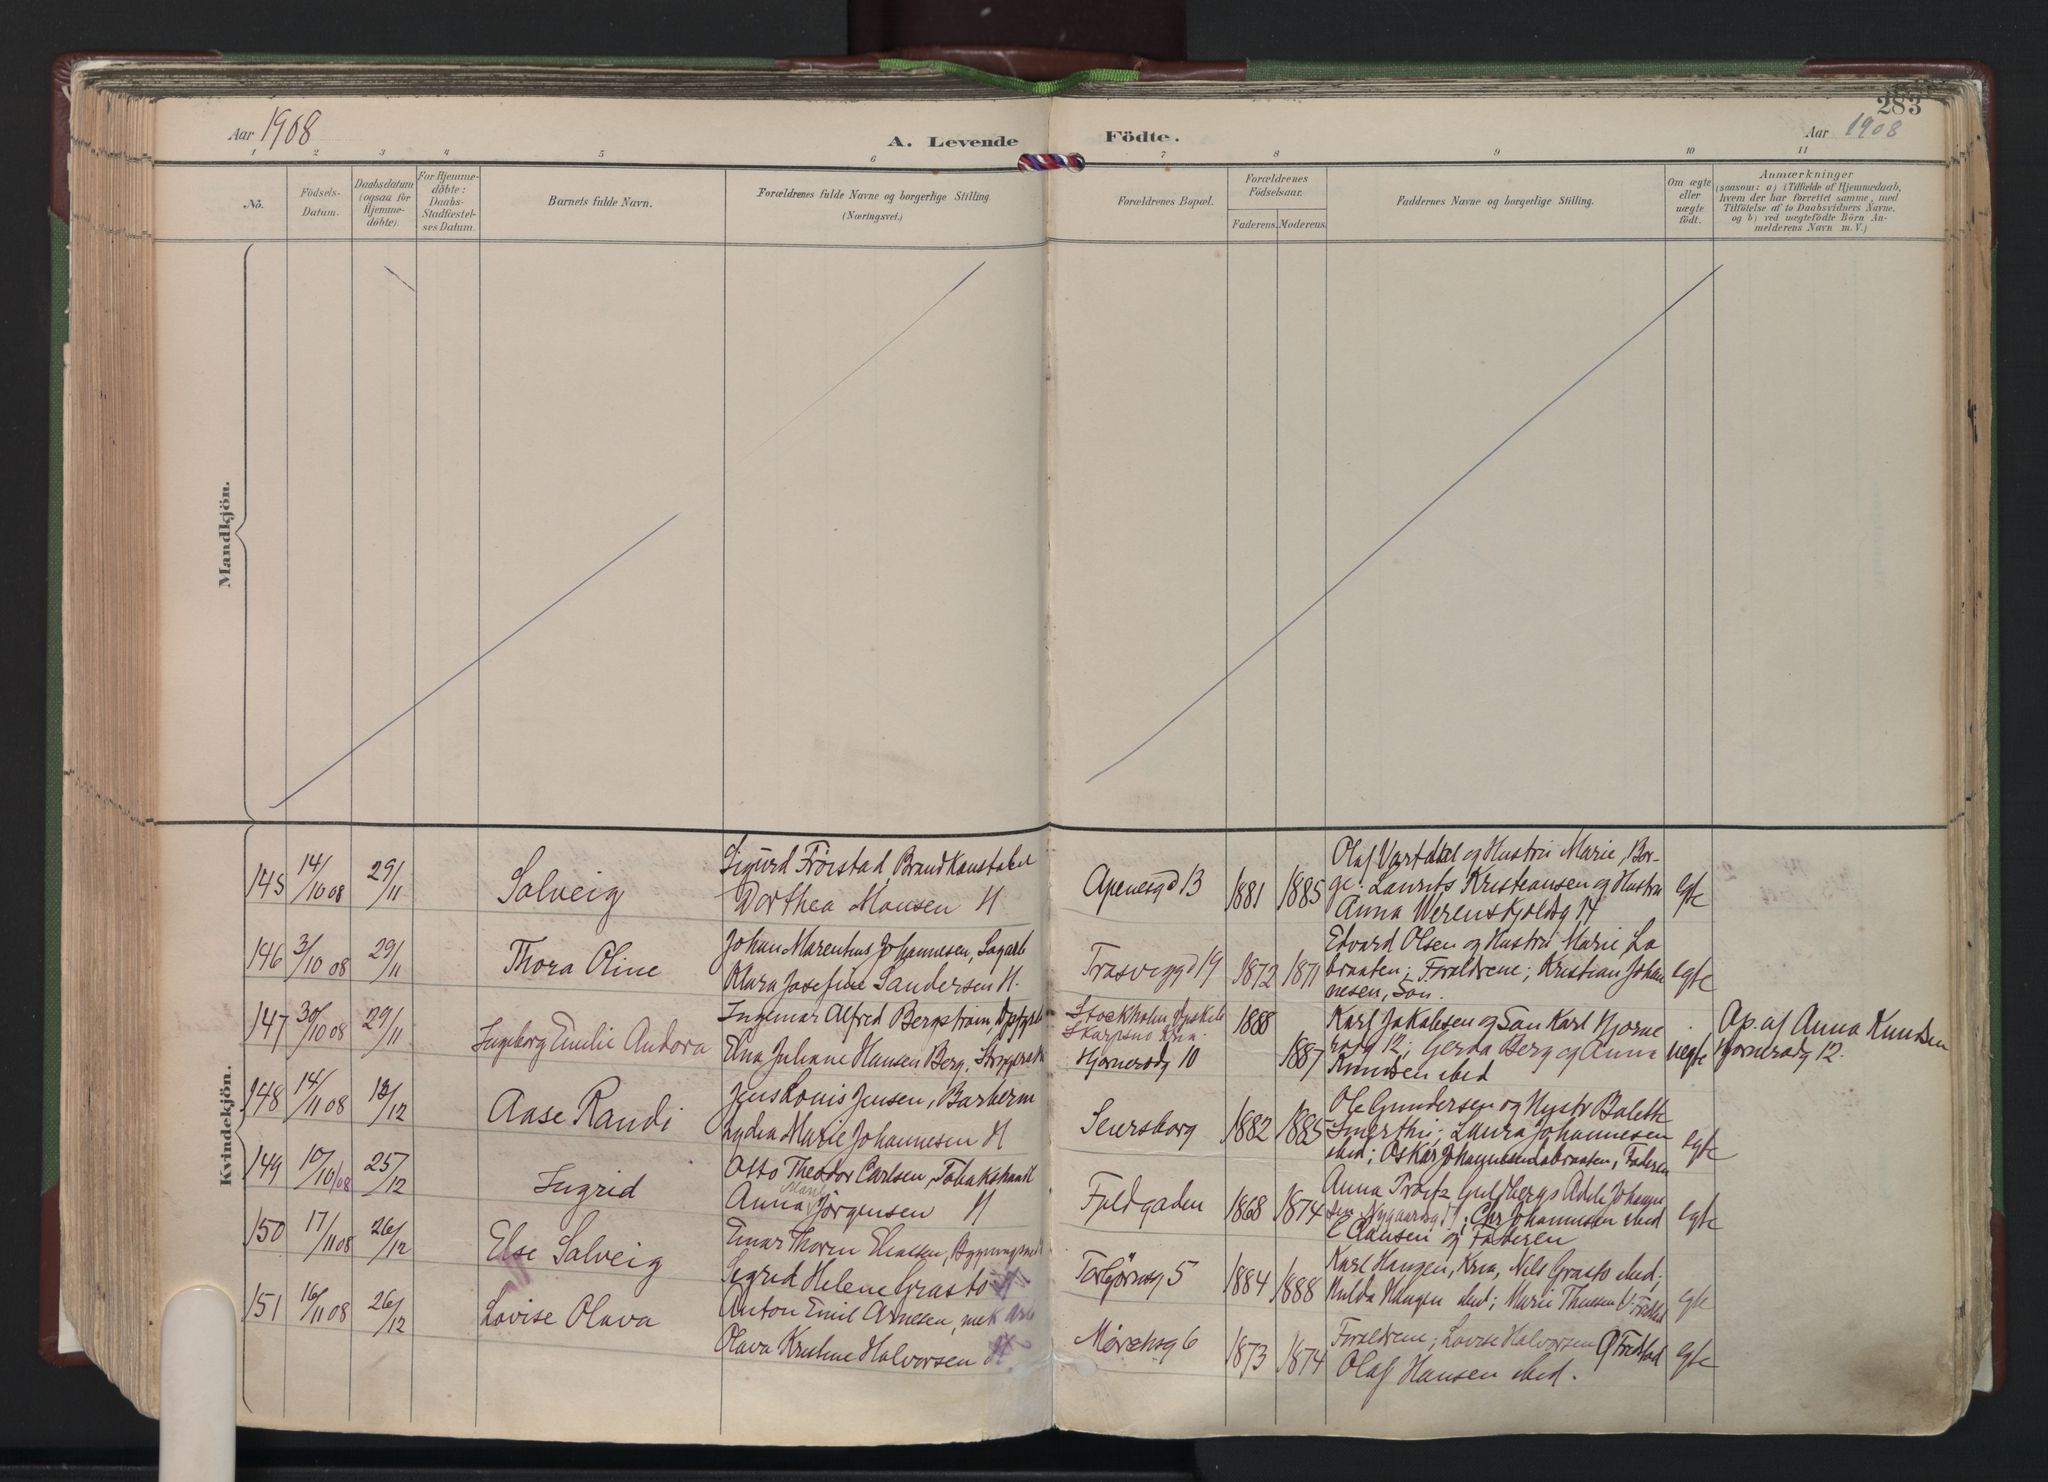 283
Aar 1908
A. Levende
Födte.
Aar 1908
1 2 3 4 5 6 7 8 9 10 11
Nö.
Födsels-
Datum.
Daabsdatum
(ogsaa for
Hjemme-
döbte).
For Hjemme-
döbte:
Daabs-
Stadfæstel-
ses Datum.
Barnets fulde Navn.
Forældrenes fulde Navne og borgerlige Stilling
(Næringsvei.)
Forældrenes Bopæl.
Forældrenes
Födselsaar.
Faderens. Moderens.
Faddernes Navne og borgerlige Stilling.
Om ægte
eller
uægte
födt.
Anmærkninger
(saasom: a) i Tilfælde af Hjemmedaab,
hvem der har forrettet samme, med
Tilföielse af to Daabsvidners Navne.
og b) ved uægtefödte Börn An-
melderens Navn m. V.)
Mandkjön.
Kvindekjön.
145 14/10 08 29/11 Solveig
Sigurd Fröistad, Brandkonstabel
Dorthea Monsen H
Apenesgd 13 1881 1885
Olaf Vartdal og Hustru Marie, Bor-
ge; Laurits Kristiansen og Hustru
Anna Werenskjoldsg 14
egte
146 31/10 08 29/11 Thora Oline
Johan Marentius Johannesen, Sagarb
Klara Josefine Sandersen H.
Trosviggd 19 1872 1871
Edvard Olsen og Hustru Marie La
braaten; Foraldrene; Kristian Johan
nesen, Sön.
egte
147 30/10 08 29/11 Ingeborg Emilie Andora
Ingemar Alfred Bergström,
Elna Juliane Hansen Berg,
Stockholm
Hjornerödg 10 1888 1887
Karl Jakobsen og Sön Karl Hjorne
rödg 12; Gerda Berg og Anna
Knudsen ibid
uegte
Ap. af Anna Knudsen
Hjornerödg 12.
148 14/11 08 13/12 Aase Randi
Jens Louis Jensen, Barberm
Lydia Marie Johannesen H
Seiersborg 1882 1885
Ole Gundersen og Hustr
Laura Johannesen
ibid; Oskar Johannesen Labraaten, Faderen
egte
149 10/10/08 25/12 Ingrid
Otto Theodor Carlsen, Tobakshandl
Anna Jörgensen H
Fjeldgaden 1868 1874
Anna
Chr Johannesen ibid
C Hansen og Faderen
egte
150 17/11 08 26/12 Else Solveig
Einar Thorvn Eliassen, Bygningssned
Sigrid Helene Grastö H
Torbjörnsg 5 1884 1888
Karl Haugen, Kria, Nils Grastö ibid;
Hulda Haugen ibid; Marie Thuesen V: Fredstad
egte
151 16/11 08 26/12 Lovise Olava
Anton Emil Arnesen, mek Arb
Olava Kristine Halvorsen H
Mörchsg 6 1873 1874
Foraldrene; Lovise Halvorsen Ø Fredstad
Olaf Hansen ibid.
egte